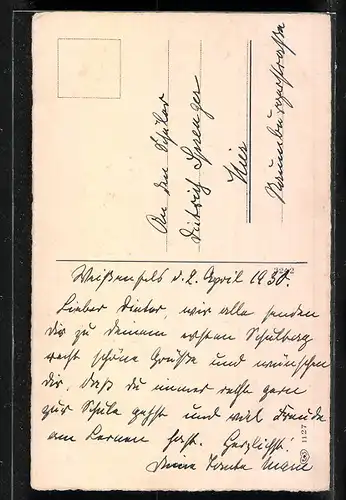 An den Schüler
Dietrich Sprenger
Hier
Naumburgerstraße
Weißenfels d. 2. April 1930.
Lieber Dieter, wir alle senden
dir zu deinem ersten Schultag
recht schöne Grüße und wünschen
dir, daß du immer recht gern
zur Schule gehst und viel Freude
am Lernen hast. Herzlichst!
Deine Tante
1127